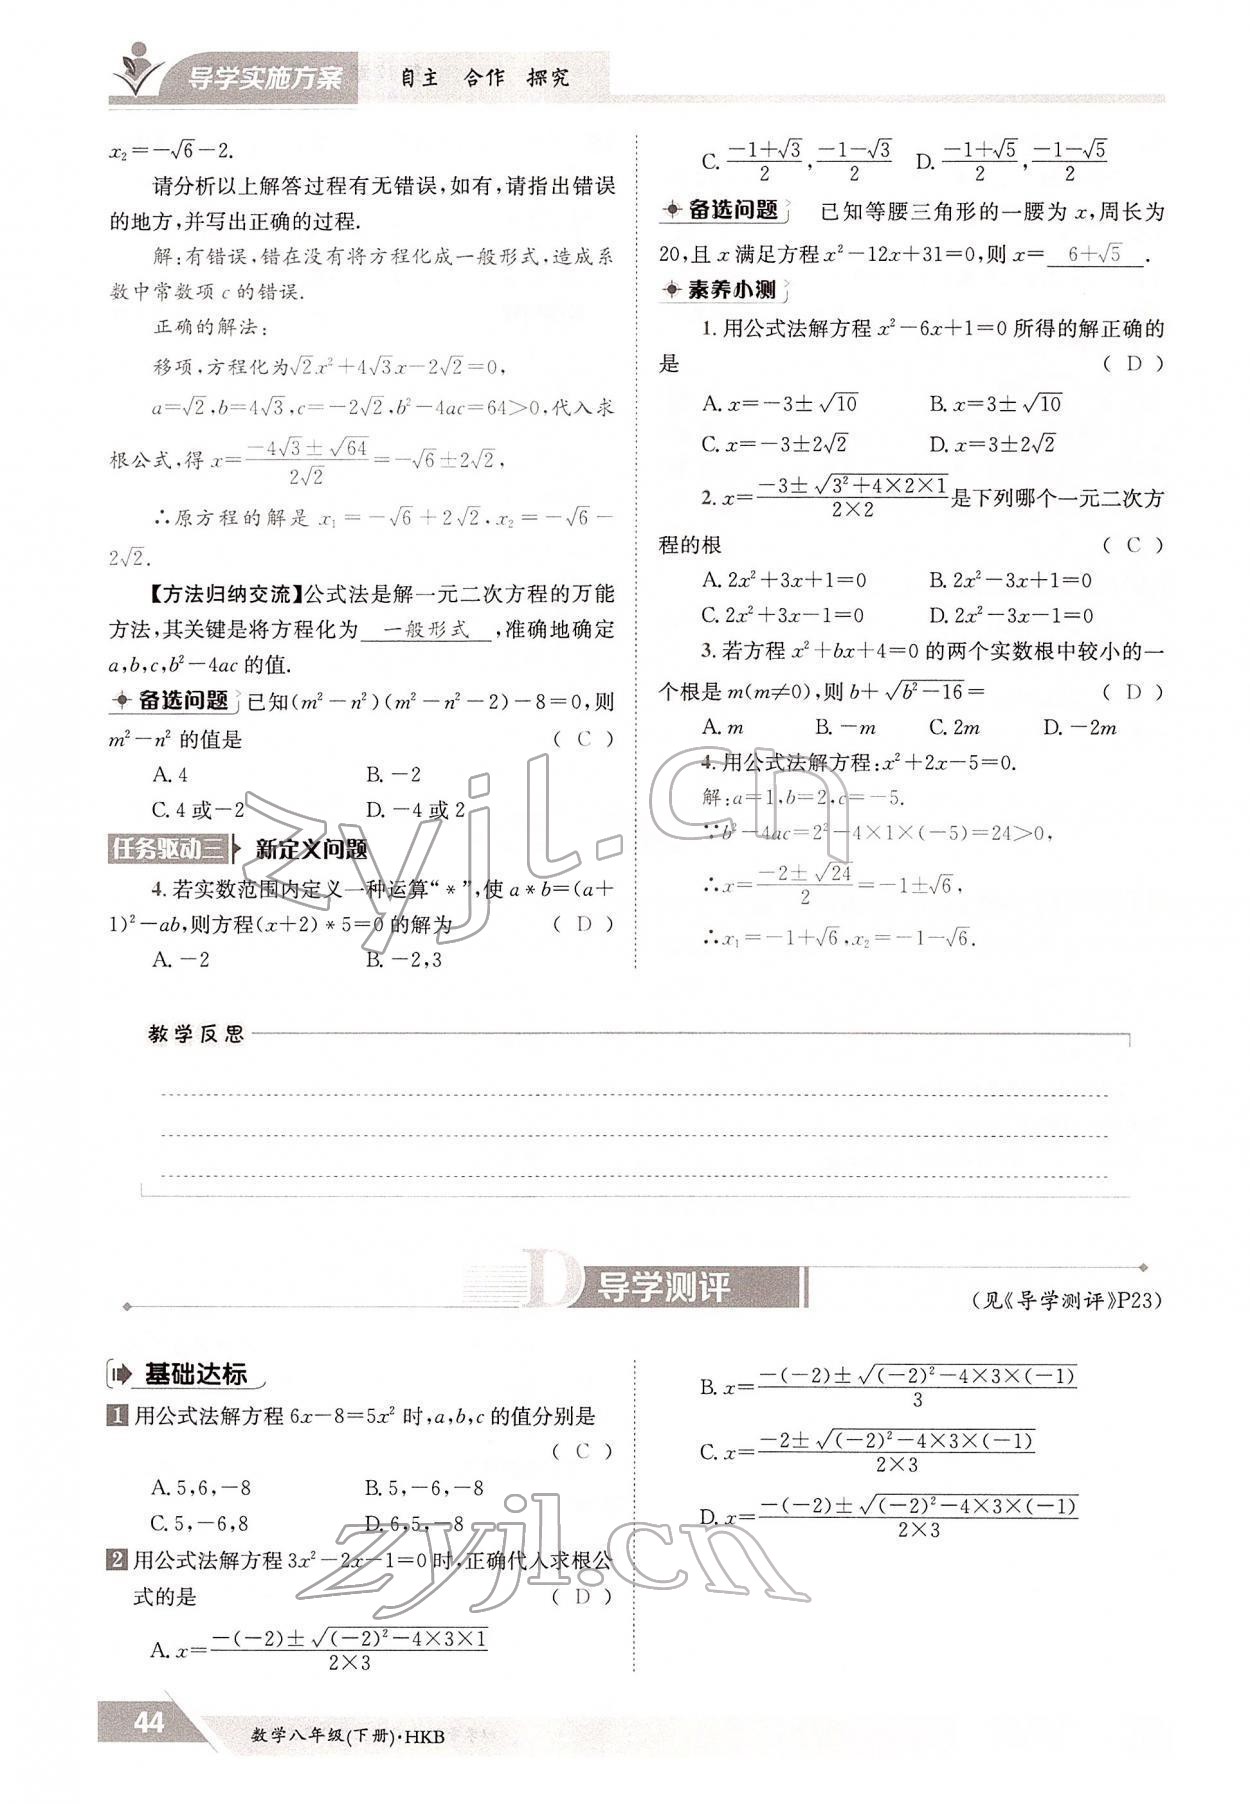 导学实施方案 自主 合作 探究
x₂=-√6-2.
请分析以上解答过程有无错误,如有,请指出错误
的地方,并写出正确的过程.
解:有错误,错在没有将方程化成一般形式,造成系
数中常数项 c 的错误.
正确的解法:
移项,方程化为√2x²+4√3x-2√2=0,
a=√2,b=4√3,c=-2√2,b²-4ac=64>0,代入求
根公式,得 x=(-4√3±√64)/(2√2)=-√6±2√2,
∴原方程的解是 x₁=-√6+2√2,x₂=-√6-
2√2.
【方法归纳交流】公式法是解一元二次方程的万能
方法,其关键是将方程化为 一般形式 ,准确地确定
a,b,c,b²-4ac 的值.
备选问题 已知(m²-n²)(m²-n²-2)-8=0,则
m²-n² 的值是 ( C )
A.4 B.-2
C.4 或-2 D.-4 或 2
任务驱动三 新定义问题
4.若实数范围内定义一种运算“*”,使 a*b=(a+
1)²-ab,则方程(x+2)*5=0 的解为 ( D )
A.-2 B.-2,3
C.(-1+√3)/2,(-1-√3)/2 D.(-1+√5)/2,(-1-√5)/2
备选问题 已知等腰三角形的一腰为 x,周长为
20,且 x 满足方程 x²-12x+31=0,则 x= 6+√5 .
素养小测
1.用公式法解方程 x²-6x+1=0 所得的解正确的
是 ( D )
A.x=-3±√10 B.x=3±√10
C.x=-3±2√2 D.x=3±2√2
2.x=(-3±√(3²+4×2×1))/(2×2)是下列哪个一元二次方
程的根 ( C )
A.2x²+3x+1=0 B.2x²-3x+1=0
C.2x²+3x-1=0 D.2x²-3x-1=0
3.若方程 x²+bx+4=0 的两个实数根中较小的一
个根是 m(m≠0),则 b+√(b²-16)= ( D )
A.m B.-m C.2m D.-2m
4.用公式法解方程:x²+2x-5=0.
解:a=1,b=2,c=-5.
∵b²-4ac=2²-4×1×(-5)=24>0,
∴x=(-2±√24)/2=-1±√6,
∴x₁=-1+√6,x₂=-1-√6.
教学反思
D 导学测评
(见《导学测评》P23)
基础达标
1 用公式法解方程 6x-8=5x² 时,a,b,c 的值分别是
( C )
A.5,6,-8 B.5,-6,-8
C.5,-6,8 D.6,5,-8
2 用公式法解方程 3x²-2x-1=0 时,正确代入求根公
式的是 ( D )
A.x=(-(-2)±√((-2)²-4×3×1))/(2×3)
B.x=(-(-2)±√((-2)²-4×3×(-1)))/3
C.x=(-2±√((-2)²-4×3×(-1)))/(2×3)
D.x=(-(-2)±√((-2)²-4×3×(-1)))/(2×3)
44 数学八年级(下册)·HKB
zyjl.cn
zyjl.cn